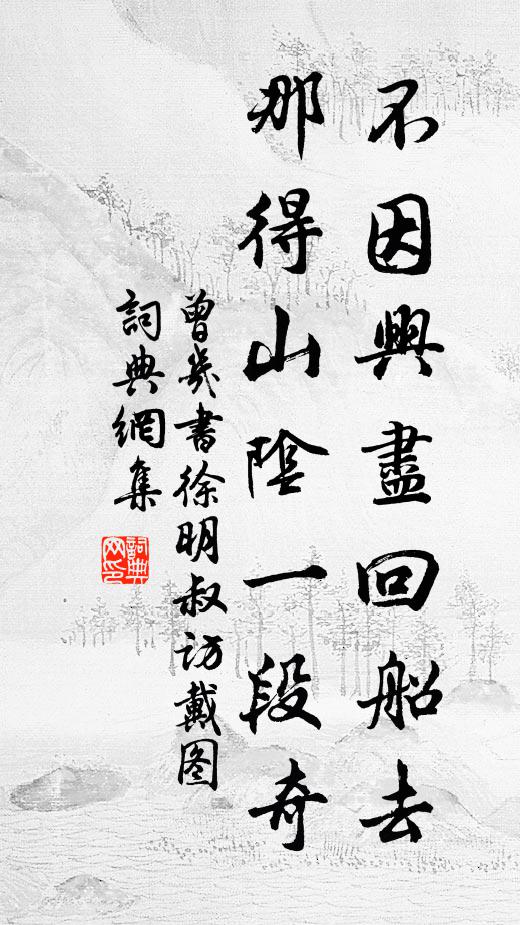 不因興盡回船去
那得山陰一段奇
曾幾書徐明叔訪戴图
詞典網集
詞典网印